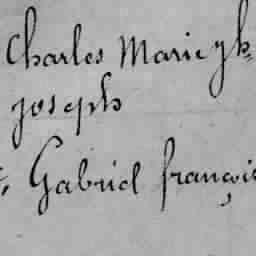 Charles Marie
joseph
Gabriel françois